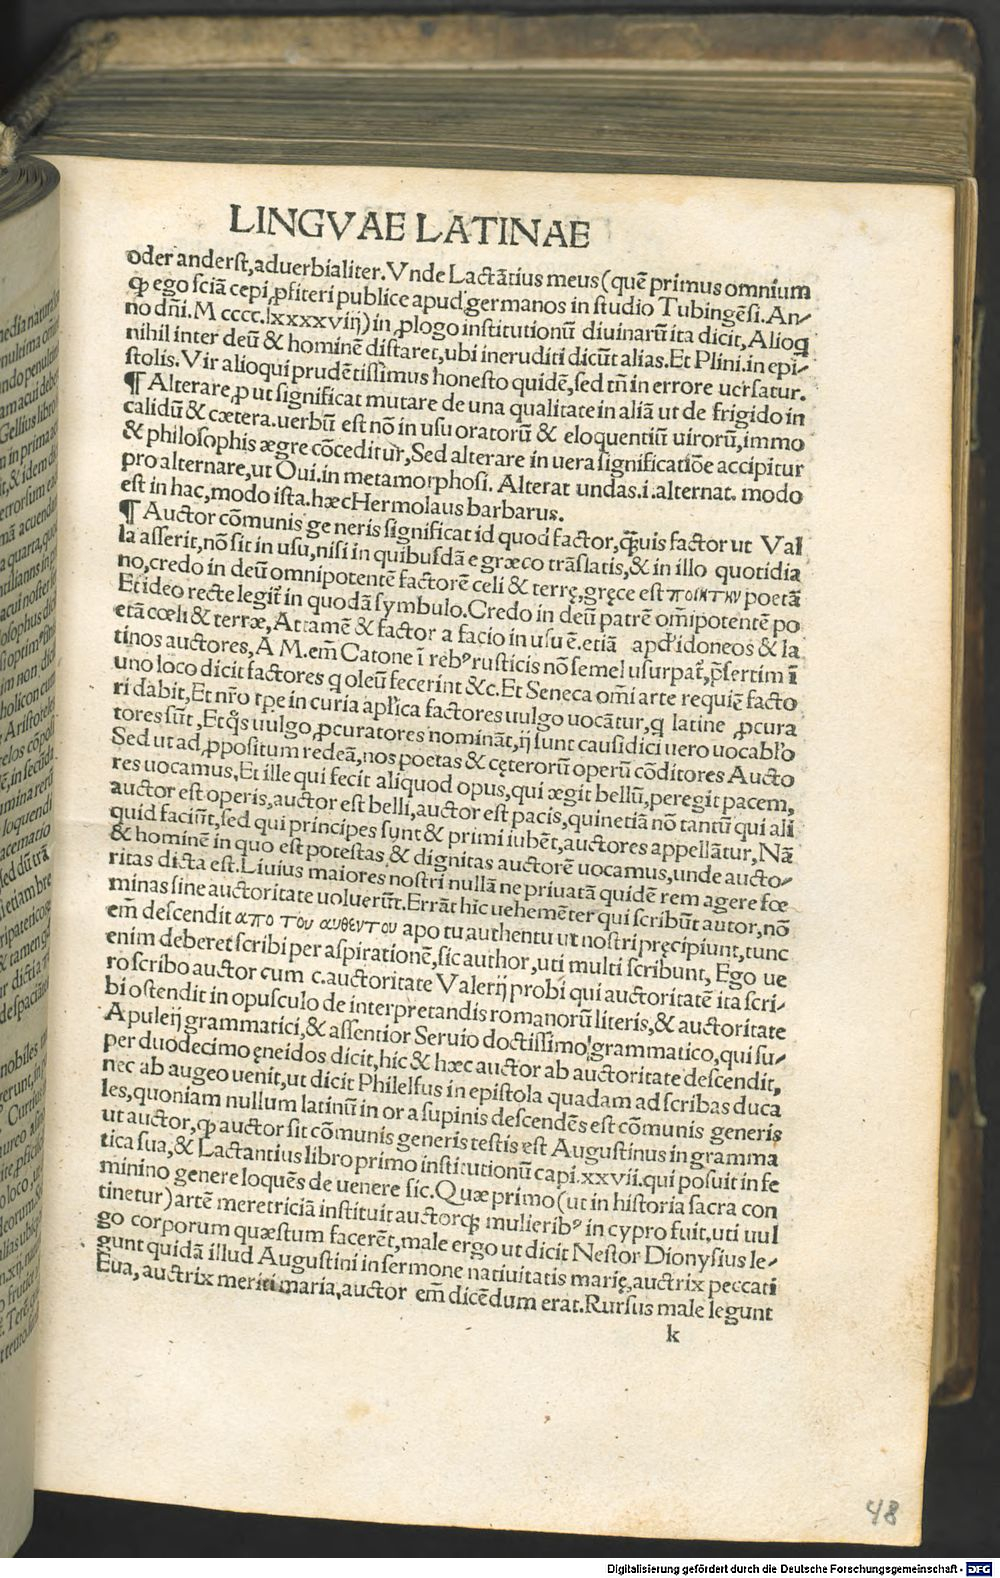 LINGVAE LATINAE
oder anderst,aduerbialiter.Vnde Lactãtius meus(quẽ primus omnium
ꝙ ego sciã cepi ꝓfiteri publice apud germanos in studio Tubingẽsi.An-
no dñi.M cccc.lxxxxviij)in ꝓlogo institutionũ diuinarũ ita dicit,Alioq̃
nihil inter deũ & hominẽ distaret,ubi ineruditi dicũt alias.Et Plini.in epi-
stolis.Vir alioqui prudẽtissimus honesto quidẽ,sed tñ in errore uersatur.
¶ Alterare,ꝓ ut significat mutare de una qualitate in aliã ut de frigido in
calidũ & cætera.uerbũ est nõ in usu oratorũ & eloquentiũ uirorũ,immo
& philosophis ægre cõceditur,Sed alterare in uera significatiõe accipitur
pro alternare,ut Oui.in metamorphosi. Alterat undas.i.alternat. modo
est in hac,modo ista.hæc Hermolaus barbarus.
¶ Auctor cõmunis ge neris significat id quod factor,q̃uis factor ut Val
la asserit,nõ sit in usu,nisi in quibusdã e græco trãslatis,& in illo quotidia
no,credo in deũ omnipotentẽ factorẽ celi & terrę,gręce est ποιητην poetã
Et ideo recte legit̃ in quodã symbulo.Credo in deũ patrẽ om̃ipotentẽ po
etã cœli & terræ,Attamẽ & factor a facio in usu ẽ.etiã apd' idoneos & la
tinos auctores,A M.em̃ Catone ĩ reb⁹ rusticis nõ semel usurpat̃,p̃sertim ĩ
uno loco dicit factores q oleũ fecerint &c.Et Seneca om̃i arte requię facto
ri dabit,Et nr̃o tp̃e in curia apl'ica factores uulgo uocãtur,q latine ꝓcura
tores sũt,Et q̃s uulgo ꝓcuratores nominãt,ij sunt causidici uero uocabl'o
Sed ut ad ꝓpositum redeã,nos poetas & cęterorũ operũ cõditores Aucto
res uocamus,Et ille qui fecit aliquod opus,qui ægit bellũ,peregit pacem,
auctor est operis,auctor est belli,auctor est pacis,quinetiã nõ tantũ qui ali
quid faciũt,sed qui principes sunt & primi iubẽt,auctores appellãtur,Nã
& hominẽ in quo est potestas & dignitas auctorẽ uocamus,unde aucto-
ritas dicta est.Liuius maiores nostri nullã ne priuatã quidẽ rem agere fœ
minas sine auctoritate uoluerũt.Errãt hic uehemẽter qui scribũt autor,nõ
em̃ descendit απο του αυθεντου apo tu authentu ut nostri pręcipiunt,tunc
enim deberet scribi per aspirationẽ,sic author,uti multi scribunt, Ego ue
ro scribo auctor cum c.auctoritate Valerij probi qui auctoritatẽ ita scri-
bi ostendit in opusculo de interpretandis romanorũ literis,& auctoritate
Apuleij grammatici,& assentior Seruio doctissimo grammatico,qui su-
per duodecimo ęneidos dicit,hic & hæc auctor ab auctoritate descendit,
nec ab augeo uenit,ut dicit Philelfus in epistola quadam ad scribas duca
les,quoniam nullum latinũ in or a supinis descendẽs est cõmunis generis
ut auctor,ꝙ auctor sit cõmunis generis testis est Augustinus in gramma
tica sua,& Lactantius libro primo institutionũ capi.xxvii.qui posuit in fe
minino genere loquẽs de uenere sic.Quæ primo(ut in historia sacra con
tinetur)artẽ meretriciã instituit auctorq̃ mulierib⁹ in cypro fuit,uti uul
go corporum quæstum facerẽt,male ergo ut dicit Nestor Dionysius le-
gunt quidã illud Augustini in sermone natiuitatis marię,auctrix peccati
Eua,auctrix meriti maria,auctor em̃ dicẽdum erat.Rursus male legunt
k
48
Digitalisierung gefördert durch die Deutsche Forschungsgemeinschaft - DFG